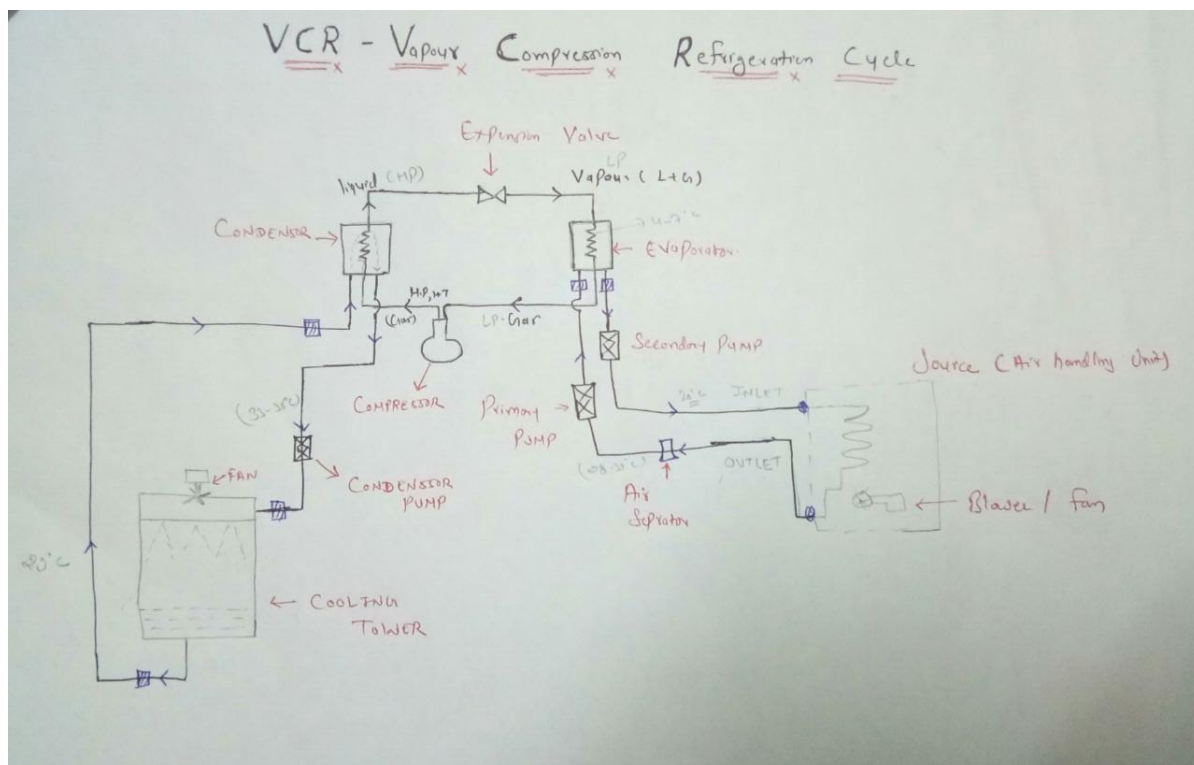 VCR - Vapour Compression Refrigeration Cycle
Expension Valve
liquid (HP)
LP
Vapour ( L+G)
CONDENSOR
Evaporator
H.P, HT
(Gas)
LP-Gas
COMPRESSOR
Secondary PUMP
Primary
PUMP
Source (Air handling Unit)
20°C INLET
OUTLET
Air
Seprator
Blower / fan
FAN
CONDENSSOR
PUMP
COOLING
TOWER